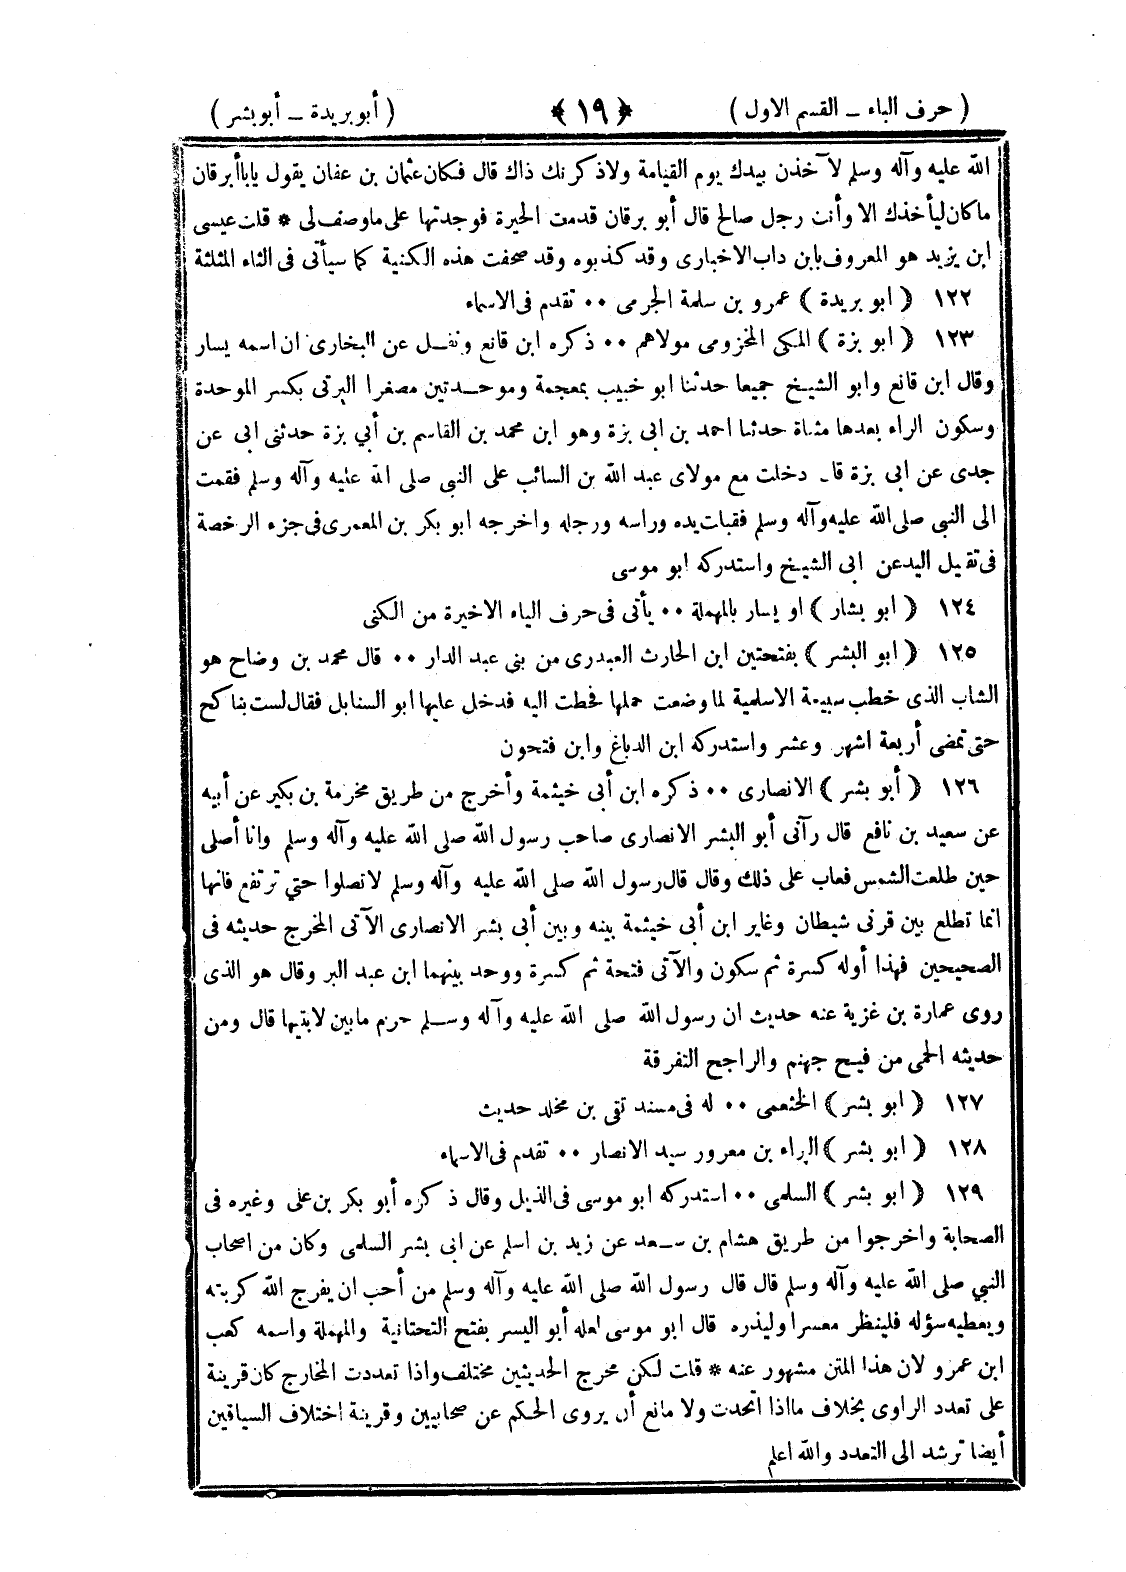 ( حرف الباء – القسم الاول ) ﴿ ١٩ ﴾ ( أبو بريدة – أبو بشر )
الله عليه وآله وسلم لآخذن بيدك يوم القيامة ولاذكرنك ذاك قال فكان عثمان بن عفان يقول ياباأبرقان
ما كان ليأخذك الا وأنت رجل صالح قال أبو برقان قدمت الحيرة فوجدتها على ما وصف لى * قلت عيسى
ابن يزيد هو المعروف بابن داب الاخبارى وقد كذبوه وقد صحفت هذه الكنية كما سيأتى فى الثاء المثلثة
١٢٢ ( ابو بريدة ) عمرو بن سلمة الجرمى ٠٠ تقدم فى الاسماء
١٢٣ ( ابو بزة ) المكى المخزومى مولاهم ٠٠ ذكره ابن قانع ونقل عن البخارى ان اسمه يسار
وقال ابن قانع وابو الشيخ جميعا حدثنا ابو خبيب بمعجمة وموحدتين مصغرا البرتى بكسر الموحدة
وسكون الراء بعدها مثناة حدثنا احمد بن ابى بزة وهو ابن محمد بن القاسم بن أبي بزة حدثنى ابى عن
جدى عن ابى بزة قا. دخلت مع مولاى عبد الله بن السائب على النبى صلى الله عليه وآله وسلم فقمت
الى النبى صلى الله عليه وآله وسلم فقبات يده وراسه ورجله واخرجه ابو بكر بن المعمرى فى جزء الرخصة
فى تقبيل اليد عن ابى الشيخ واستدركه ابو موسى
١٢٤ ( ابو بشار ) او يسار بالمهملة ٠٠ يأتى فى حرف الياء الاخيرة من الكنى
١٢٥ ( ابو البشر ) بفتحتين ابن الحارث العبدرى من بنى عبد الدار ٠٠ قال محمد بن وضاح هو
الشاب الذى خطب سبيعة الاسلمية لما وضعت حملها فحطت اليه فدخل عليها ابو السنابل فقال لست بناكح
حتى تمضى أربعة اشهر وعشر واستدركه ابن الدباغ وابن فتحون
١٢٦ ( أبو بشر ) الانصارى ٠٠ ذكره ابن أبى خيثمة وأخرج من طريق مخرمة بن بكير عن أبيه
عن سعيد بن نافع قال رآنى أبو البشر الانصارى صاحب رسول الله صلى الله عليه وآله وسلم وانا أصلى
حين طلعت الشمس فعاب على ذلك وقال قال رسول الله صلى الله عليه وآله وسلم لاتصلوا حتي ترتفع فانها
انما تطلع بين قرنى شيطان وغاير ابن أبى خيثمة بينه وبين أبى بشر الانصارى الآتى المخرج حديثه فى
الصحيحين فهذا أوله كسرة ثم سكون والآتى فتحة ثم كسرة ووحد بينهما ابن عبد البر وقال هو الذى
روى عمارة بن غزية عنه حديث ان رسول الله صلى الله عليه وآله وسلم حرم مابين لابتيها قال ومن
حديثه الحمى من فيح جهنم والراجح التفرقة
١٢٧ ( ابو بشر ) الخثعمى ٠٠ له فى مسند تقى بن مخلد حديث
١٢٨ ( ابو بشر ) البراء بن معرور سيد الانصار ٠٠ تقدم فى الاسماء
١٢٩ ( ابو بشر ) السلمى ٠٠ استدركه ابو موسى فى الذيل وقال ذكره أبو بكر بن على وغيره فى
الصحابة واخرجوا من طريق هشام بن سعد عن زيد بن اسلم عن ابى بشر السلمى وكان من اصحاب
النبي صلى الله عليه وآله وسلم قال قال رسول الله صلى الله عليه وآله وسلم من أحب ان يفرج الله كربته
ويعطيه سؤله فلينظر معسرا وليذره قال ابو موسى لعله أبو اليسر بفتح التحتانية والمهملة واسمه كعب
ابن عمرو لان هذا المتن مشهور عنه * قلت لكن مخرج الحديثين مختلف واذا تعددت المخارج كان قرينة
على تعدد الراوى بخلاف مااذا اتحدت ولا مانع أن يروى الحكم عن صحابيين وقرينة اختلاف السياقين
أيضا ترشد الى التعدد والله اعلم